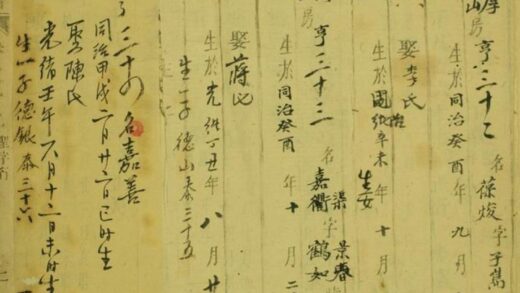 山房
亨三十二 名葆焌字子嵩
生於同治癸酉年九月
娶李氏
生於 辛未年十月
生女
亨三十三 名嘉衢字鶴如
渠 景春
生於同治癸酉年十月二
娶蔣氏
生於光緒丁丑年八月廿
生一子德山泰三十五
三十四 名嘉善
同治甲戌二月廿二日巳时生
娶陳氏
光緒壬午八月十二日未时生
生一子德銀泰三十六